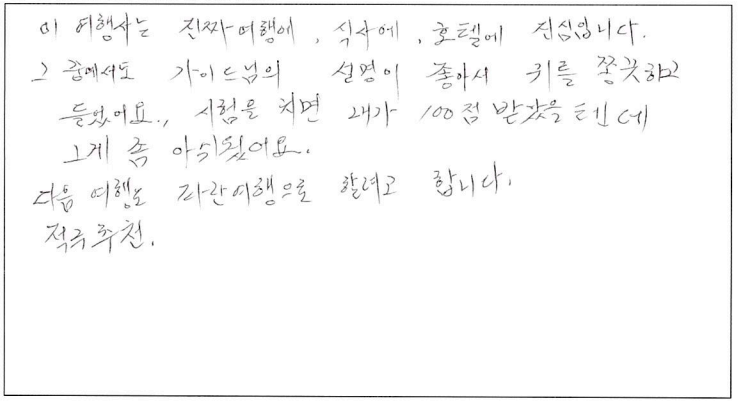 이 여행사는 진짜 여행에, 식사에, 호텔에 진심입니다.
그 중에서도 가이드님의 설명이 좋아서 귀를 쫑긋하고
들었어요., 시험을 치면 내가 100점 받았을 텐데
그게 좀 아쉬웠어요.
다음 여행도 파란여행으로 할려고 합니다.
적극 추천.